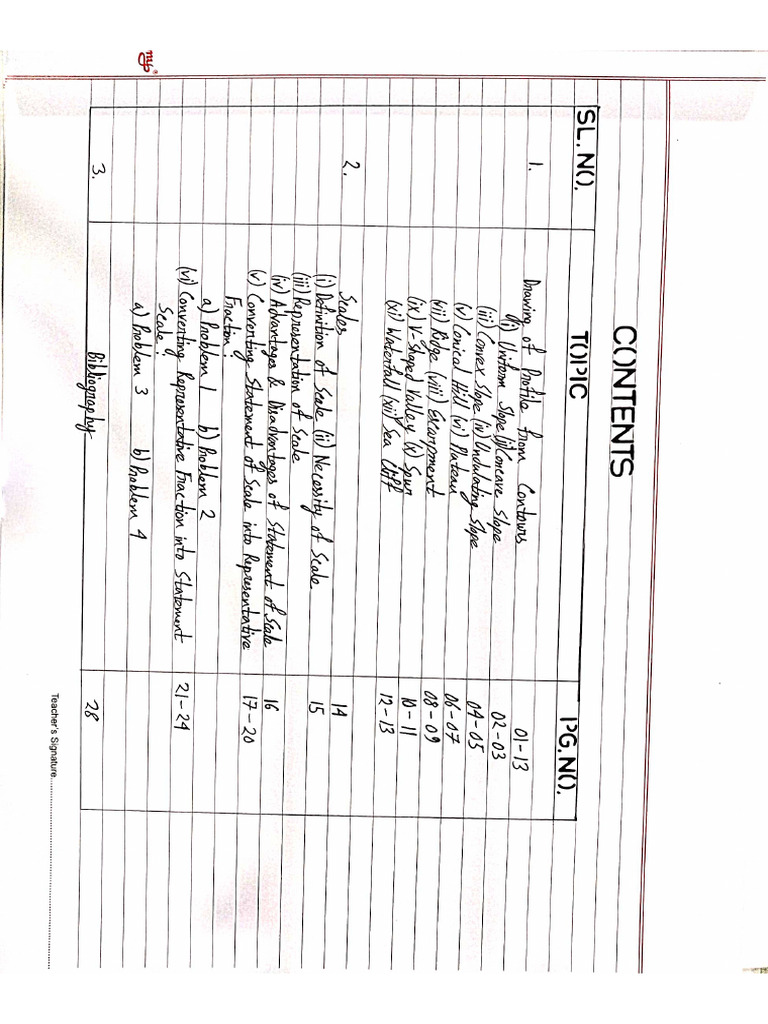 nyp
CONTENTS
SL. NO. TOPIC PG. NO.
1. Drawing of Profile from Contours 01-13
(i) Uniform Slope (ii) Concave Slope 02-03
(iii) Convex Slope (iv) Undulating Slope 04-05
(v) Conical Hill (vi) Plateau 06-07
(vii) Ridge (viii) Escarpment 08-09
(ix) V-Shaped Valley (x) Spur 10-11
(xi) Waterfall (xii) Sea Cliff 12-13
2. Scales 14
(i) Definition of Scale (ii) Necessity of Scale 15
(iii) Representation of Scale
(iv) Advantages & Disadvantages of Statement of Scale 16
(v) Converting Statement of Scale into Representative 17-20
Fraction:
a) Problem 1 b) Problem 2
(vi) Converting Representative Fraction into Statement 21-24
Scale:
a) Problem 3 b) Problem 4
3. Bibliography 28
Teacher's Signature